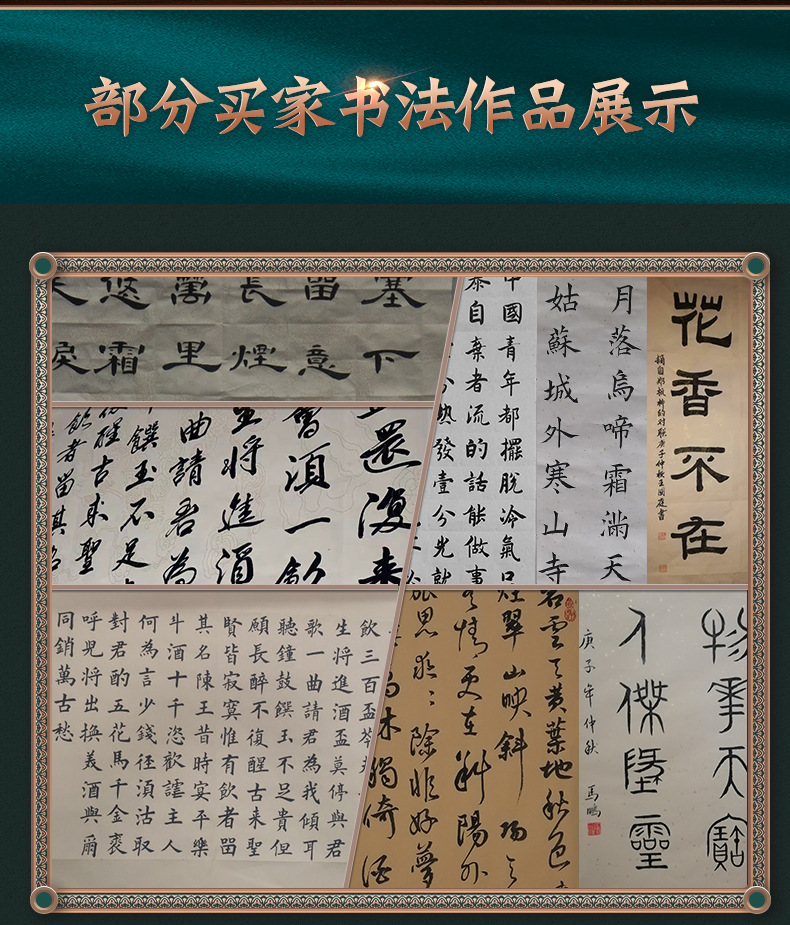 部分买家书法作品展示
塞下
留意
長煙
萬里
悠霜
淚
還復來
會須一飲
將進酒
曲請君為
饌玉不足
醒古來聖
飲者畄其名
花香不在
月落烏啼霜滿天
姑蘇城外寒山寺
中國青年都擺脫冷氣
自棄者流的話能做事
分熱發壹分光就
飲三百盃岑
生将進酒盃莫停與君
歌一曲請君為我傾耳
聽鐘鼓饌玉不足貴但
願長醉不復醒古来聖
賢皆寂寞惟有飲者畱
其名陳王昔時宴平樂
斗酒十千恣歡謔主人
何為言少錢徑須沽取
對君酌五花馬千金裘
呼兒将出換美酒與爾
同銷萬古愁
物華天寶
人傑墬靈
庚子年仲秋 馬鵬
碧雲天黄葉地秋色
煙翠山映斜陽天
情更在斜陽外
旅思追〻除非好夢
高休獨倚酒